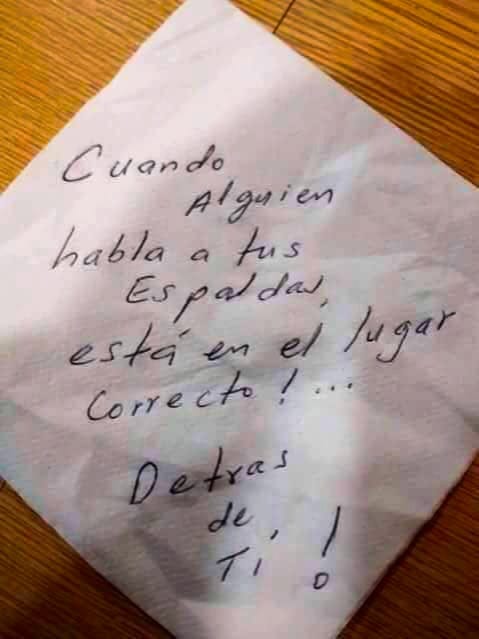 Cuando
Alguien
habla a tus
Espaldas,
está en el lugar
Correcto!...
Detras
de,
TI !